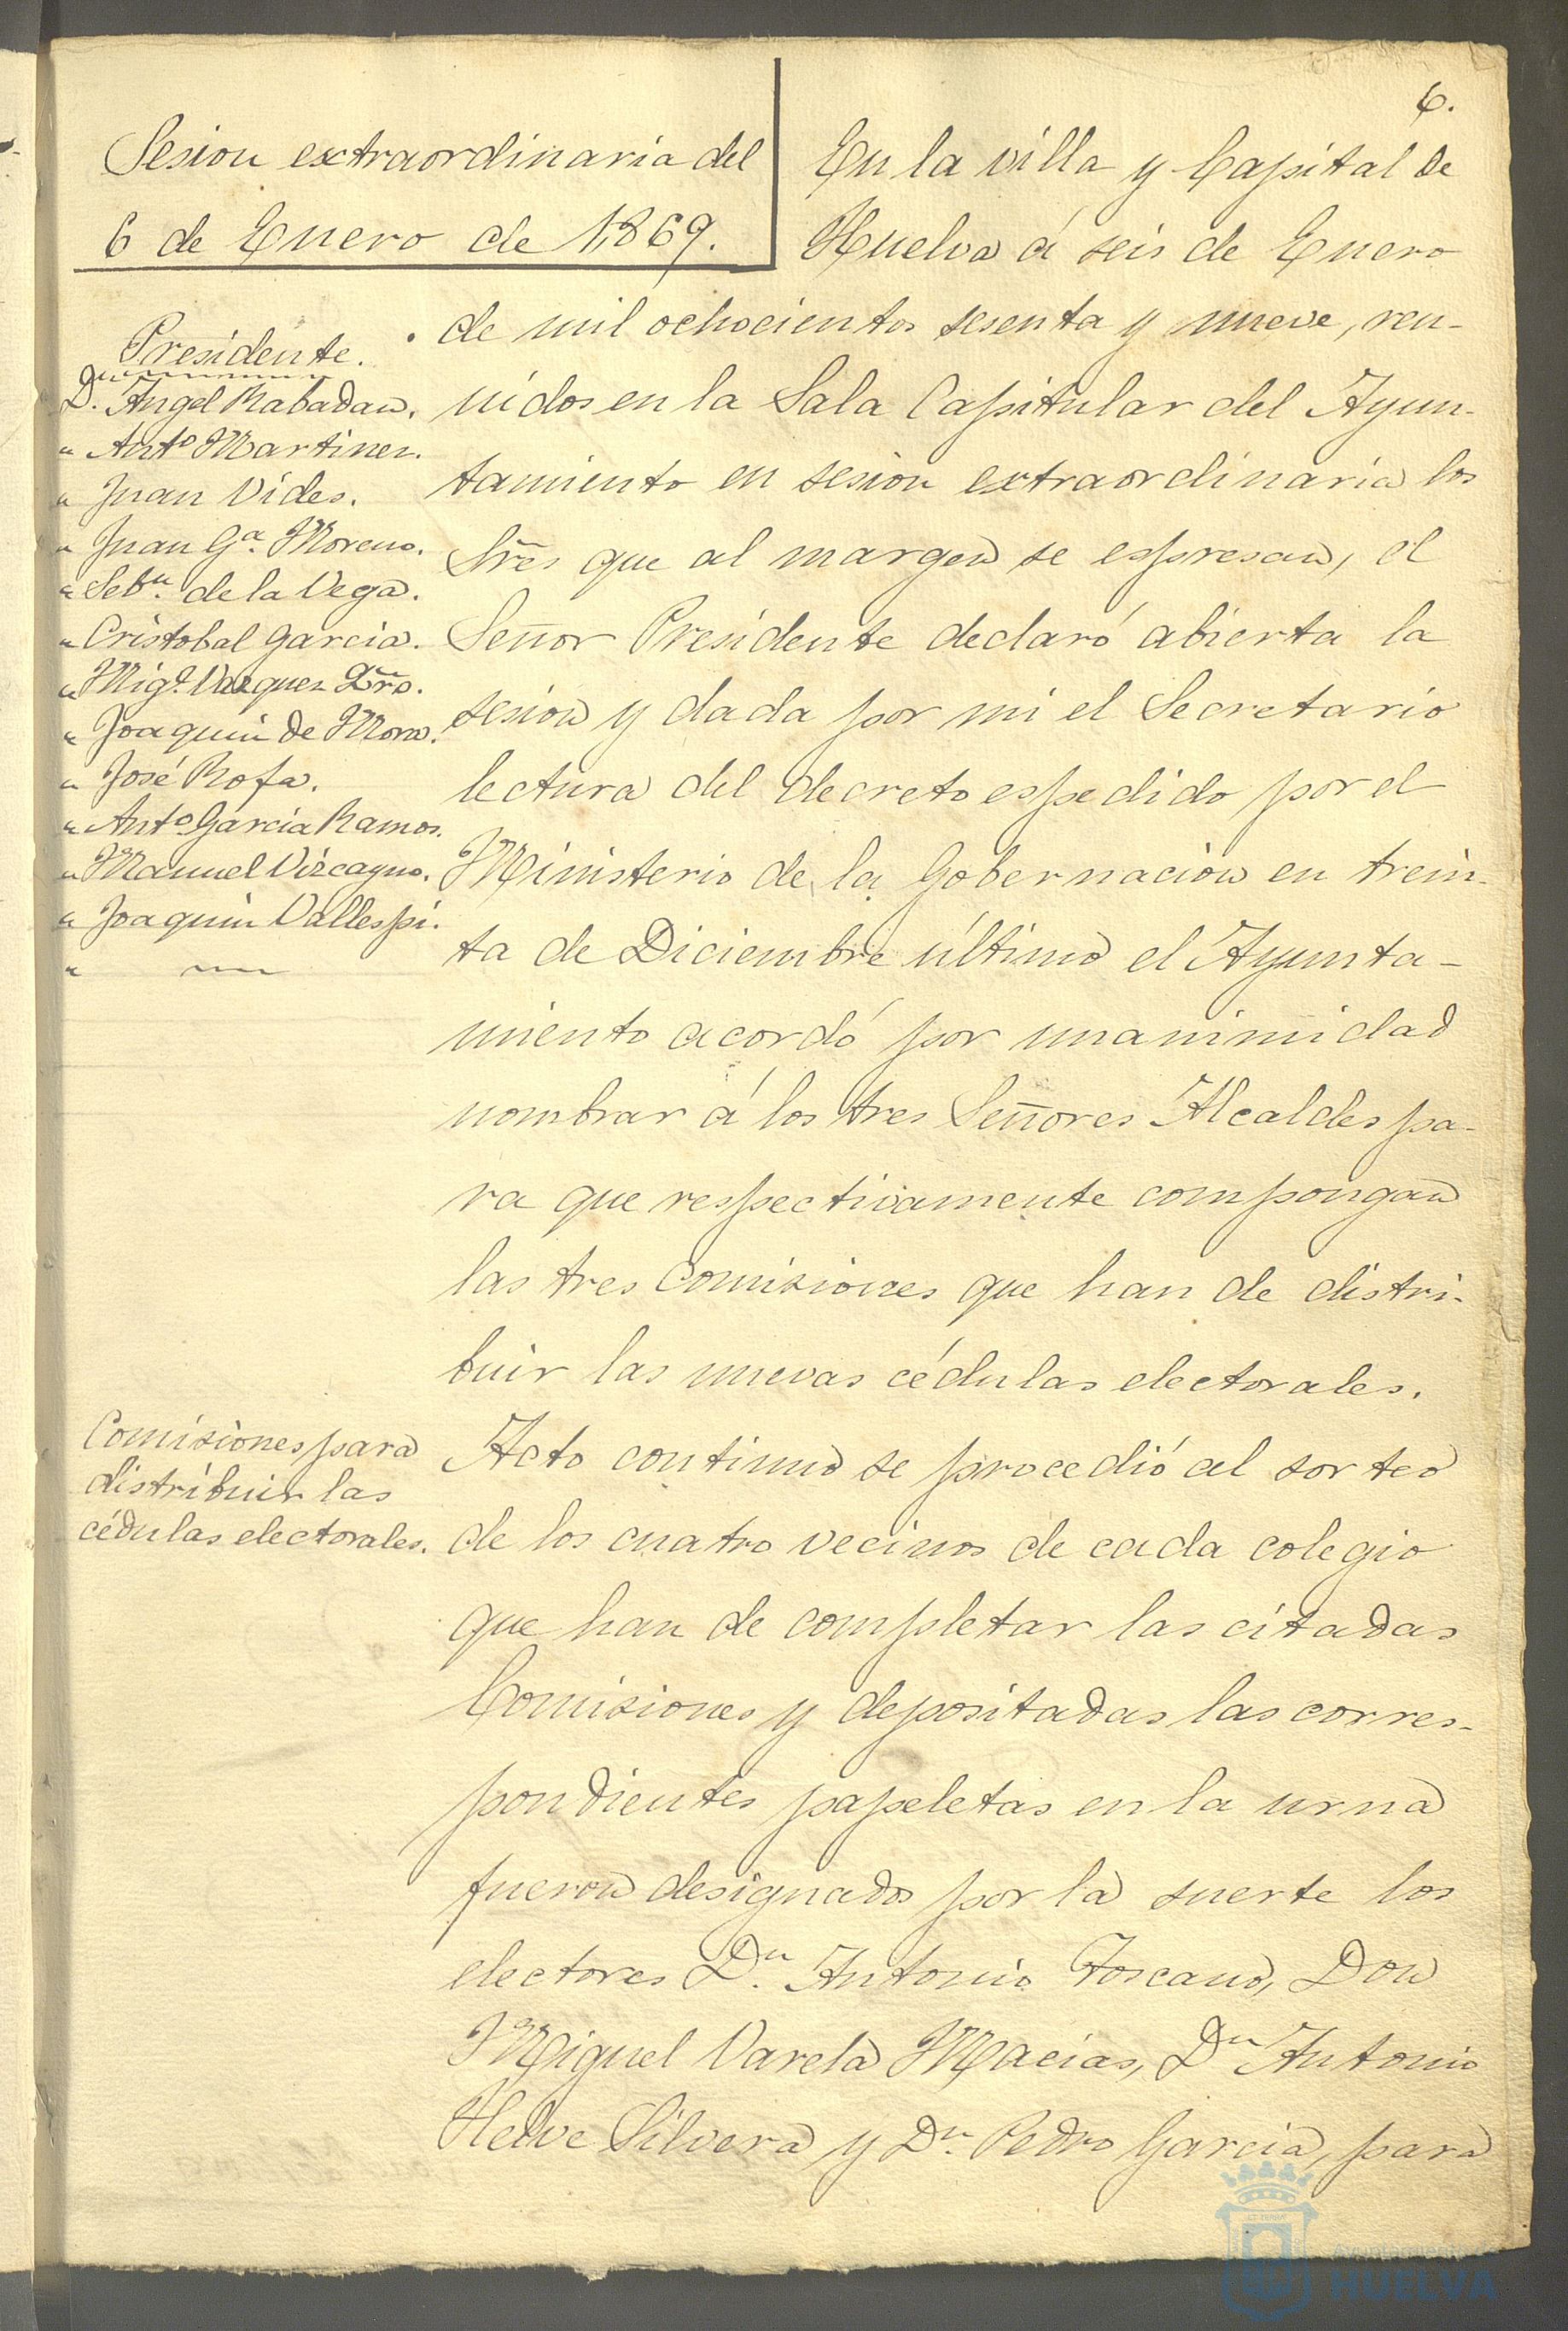 6.
Sesion extraordinaria del
6 de Enero de 1,869.
Presidente.
Dn. Angel Rabadan.
" Anto Martinez.
" Juan Vides.
" Juan Ga. Moreno.
" Sebn. de la Vega.
" Cristobal Garcia.
" Migl. Vazquez
" Joaquin de Mora.
" José Rofa.
" Anto Garcia Ramos.
" Manuel Vizcayno.
" Joaquin Vallespi.
"
En la villa y Capital de
Huelva á seis de Enero
de mil ochocientos sesenta y nueve, reu-
nidos en la Sala Capitular del Ayun-
tamiento en sesion extraordinaria los
Sres que al margen se espresan, el
Señor Presidente declaró abierta la
sesion y dada por mi el Secretario
lectura del decreto espedido por el
Ministerio de la Gobernacion en trein-
ta de Diciembre último el Ayunta-
miento acordó por unanimidad
nombrar á los tres Señores Alcaldes pa-
ra que respectivamente compongan
las tres Comisiones que han de distri-
buir las nuevas cédulas electorales.
Comisiones para
distribuir las
cédulas electorales.
Acto continuo se procedió al sorteo
de los cuatro vecinos de cada colegio
que han de completar las citadas
Comisiones y depositadas las corres-
pondientes papeletas en la urna
fueron designados por la suerte los
electores Dn. Antonio Toscano, Don
Miguel Varela Macias, Dn Antonio
Silvera y Dn. Pedro Garcia, para
Ayuntamiento
HUELVA